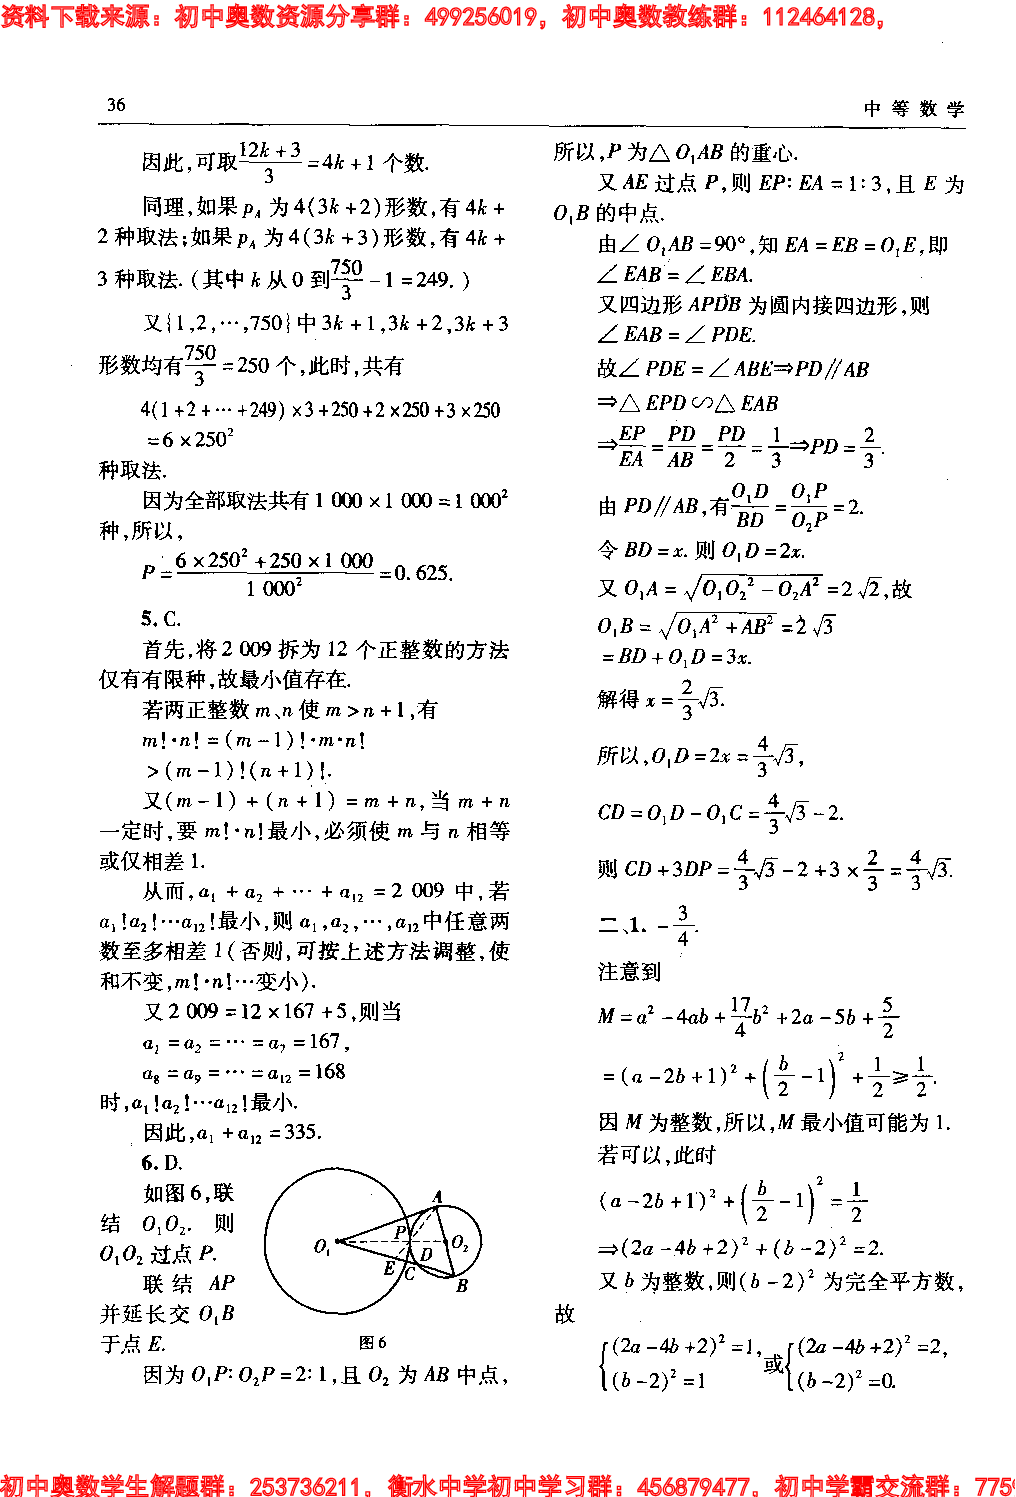 资料下载来源：初中奥数资源分享群：499256019，初中奥数教练群：112464128，
36
中 等 数 学
因此,可取12k+3/3=4k+1个数.
同理,如果p_A为4(3k+2)形数,有4k+
2种取法;如果p_A为4(3k+3)形数,有4k+
3种取法.(其中k从0到750/3-1=249.)
又{1,2,…,750}中3k+1,3k+2,3k+3
形数均有750/3=250个,此时,共有
4(1+2+…+249)×3+250+2×250+3×250
=6×250²
种取法.
因为全部取法共有1 000×1 000=1 000²
种,所以,
P=(6×250²+250×1 000)/1 000²=0.625.
5.C.
首先,将2 009拆为12个正整数的方法
仅有有限种,故最小值存在.
若两正整数m、n使m>n+1,有
m!·n!=(m-1)!·m·n!
>(m-1)!(n+1)!.
又(m-1)+(n+1)=m+n,当m+n
一定时,要m!·n!最小,必须使m与n相等
或仅相差1.
从而,a₁+a₂+…+a₁₂=2 009中,若
a₁!a₂!…a₁₂!最小,则a₁,a₂,…,a₁₂中任意两
数至多相差1(否则,可按上述方法调整,使
和不变,m!·n!…变小).
又2 009=12×167+5,则当
a₁=a₂=…=a₇=167,
a₈=a₉=…=a₁₂=168
时,a₁!a₂!…a₁₂!最小.
因此,a₁+a₁₂=335.
6.D.
如图6,联
结 O₁O₂. 则
O₁O₂过点P.
联结 AP
并延长交O₁B
于点E.
A
P
O₁
D
O₂
E
C
B
图6
因为O₁P∶O₂P=2∶1,且O₂为AB中点,
所以,P为△O₁AB的重心.
又AE过点P,则EP∶EA=1∶3,且E为
O₁B的中点.
由∠O₁AB=90°,知EA=EB=O₁E,即
∠EAB=∠EBA.
又四边形APDB为圆内接四边形,则
∠EAB=∠PDE.
故∠PDE=∠ABE⇒PD∥AB
⇒△EPD∽△EAB
⇒EP/EA=PD/AB=PD/2=1/3⇒PD=2/3.
由PD∥AB,有O₁D/BD=O₁P/O₂P=2.
令BD=x.则O₁D=2x.
又O₁A=√(O₁O₂²-O₂A²)=2√2,故
O₁B=√(O₁A²+AB²)=2√3
=BD+O₁D=3x.
解得x=2/3√3.
所以,O₁D=2x=4/3√3,
CD=O₁D-O₁C=4/3√3-2.
则CD+3DP=4/3√3-2+3×2/3=4/3√3.
二、1.-3/4.
注意到
M=a²-4ab+17/4b²+2a-5b+5/2
=(a-2b+1)²+(b/2-1)²+1/2≥1/2.
因M为整数,所以,M最小值可能为1.
若可以,此时
(a-2b+1)²+(b/2-1)²=1/2
⇒(2a-4b+2)²+(b-2)²=2.
又b为整数,则(b-2)²为完全平方数,
故
{(2a-4b+2)²=1, 或{(2a-4b+2)²=2,
(b-2)²=1 (b-2)²=0.
初中奥数学生解题群：253736211，衡水中学初中学习群：456879477，初中学霸交流群：775